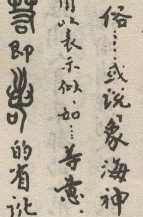 俗……或说“象海神
用以表示似、如……等意.
即 的省讹